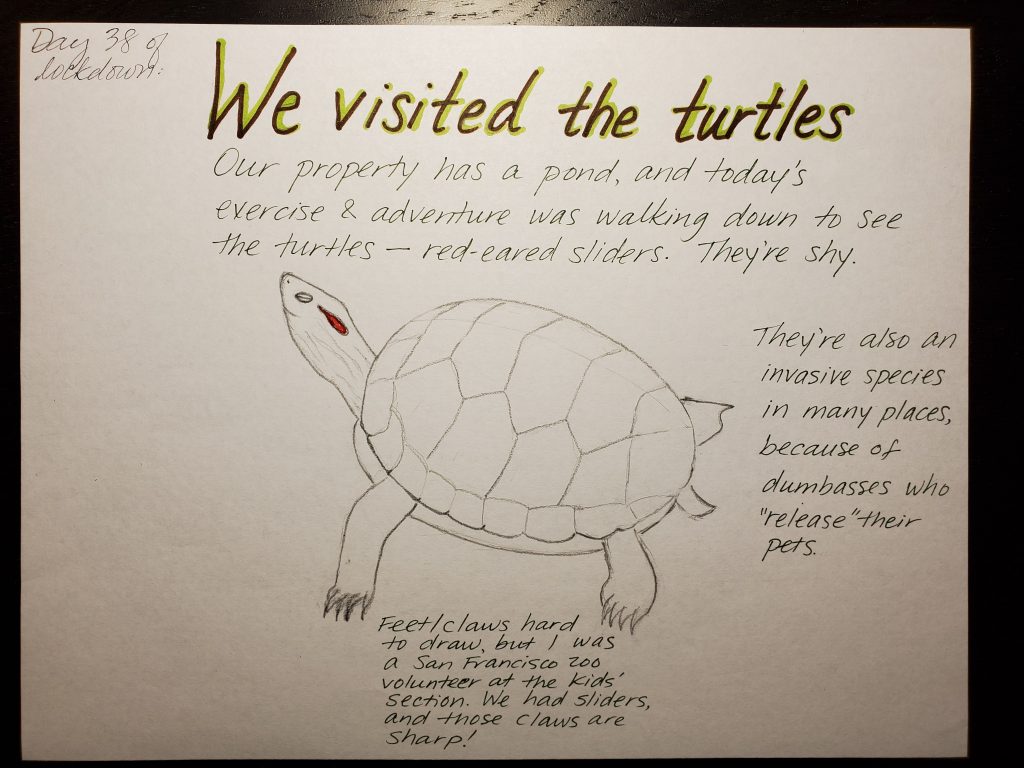 Day 38 of
lockdown:
We visited the turtles
Our property has a pond, and today's
exercise & adventure was walking down to see
the turtles — red-eared sliders. They're shy.
They're also an
invasive species
in many places,
because of
dumbasses who
"release" their
pets.
Feet/claws hard
to draw, but I was
a San Francisco zoo
volunteer at the kids'
section. We had sliders,
and those claws are
sharp!